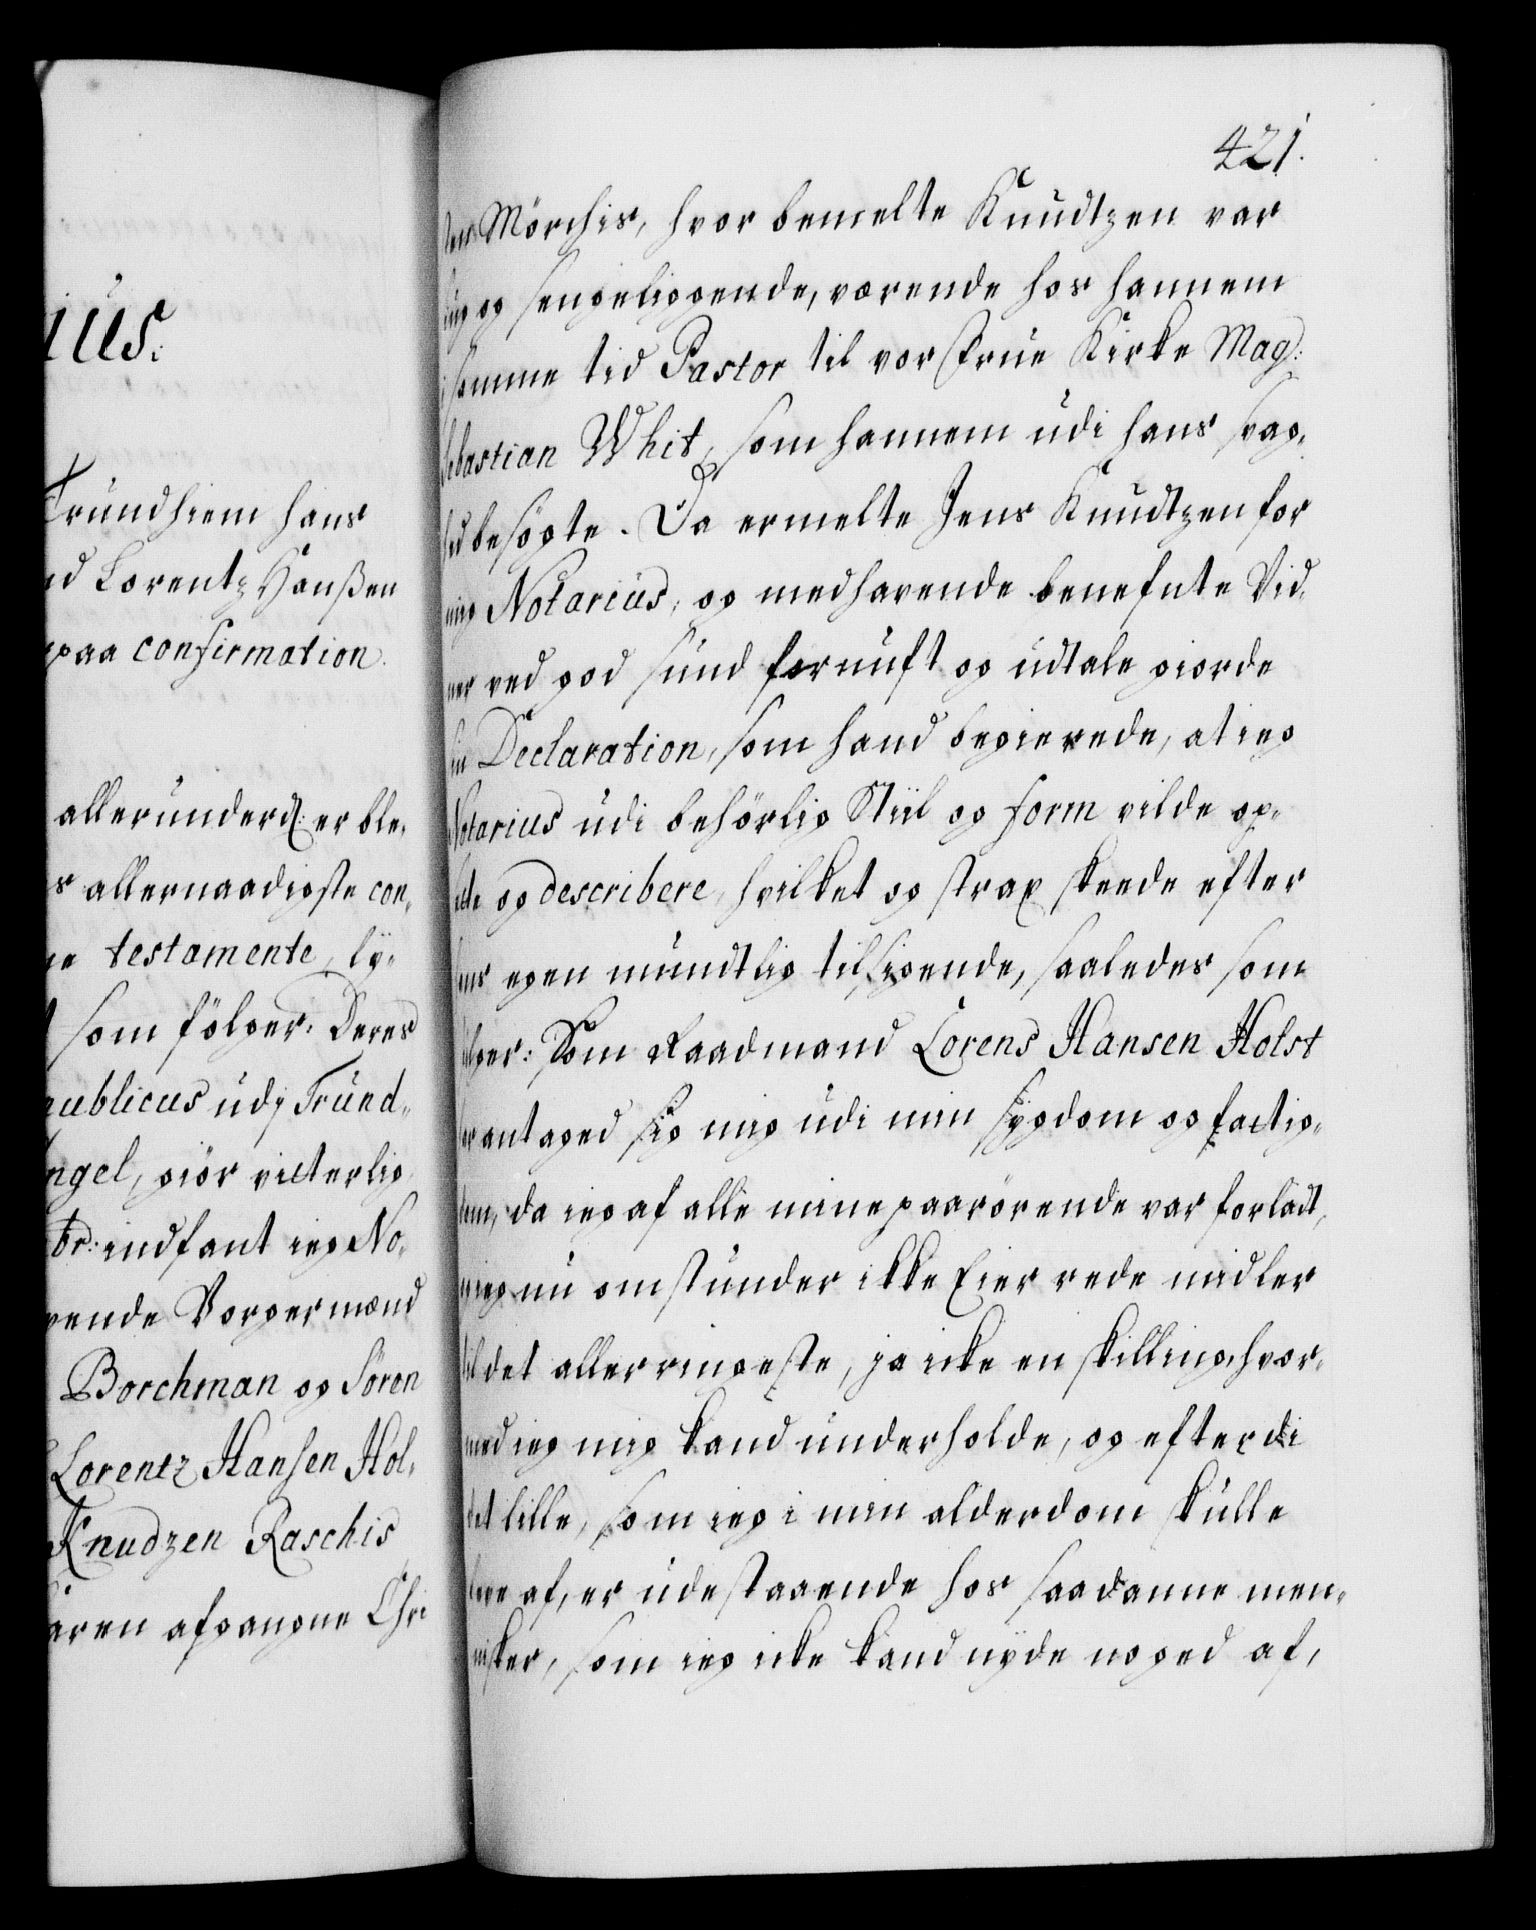 ius.
Trundhiem hans
Lorentz Hanßen
paa confirmation.
allerunderd: er ble,
allernaadigste con,
testamente, ly,
som fölger: Deres
publicus udj Trund,
giör vitterlig
indfant ieg No,
Borgermænd
Borchman og Sören
Lorentz Hansen Hol,
Knudzen Raschis
afgangne Chri
421.
Mörchis, hvor bemelte Knudtzen var
og sengeliggende, værende hos hannem
samme tid Pastor til vor Frue Kirke Mag:
Sebastian Whit, som hannem udi hans svag,
hed besögte. Da ermelte Jens Knudtzen for
mig Notarius, og medhavende benefnte Vid,
ner ved god sund fornuft og udtale giorde
sin Declaration, som hand begierede, at ieg
Notarius udi behörlig Stiil og form vilde op,
sette og describere, hvilket og strax skeede efter
hans egen mundtlig tilsigende, saaledes som
fölger: Som Raadmand Lorens Hansen Holst
har antaged sig mig udi min sygdom og fattig,
dom, da ieg af alle mine paarörende var forladt,
og ieg nu omstunder ikke Eier rede midler
til det allerringeste, ja icke en skilling, hvor,
med ieg mig kand underholde, og efterdi
det lille, som ieg i min alderdom skulle
leve af, er udestaaende hos saadanne men,
nisker, som ieg icke kand nyde noged af,